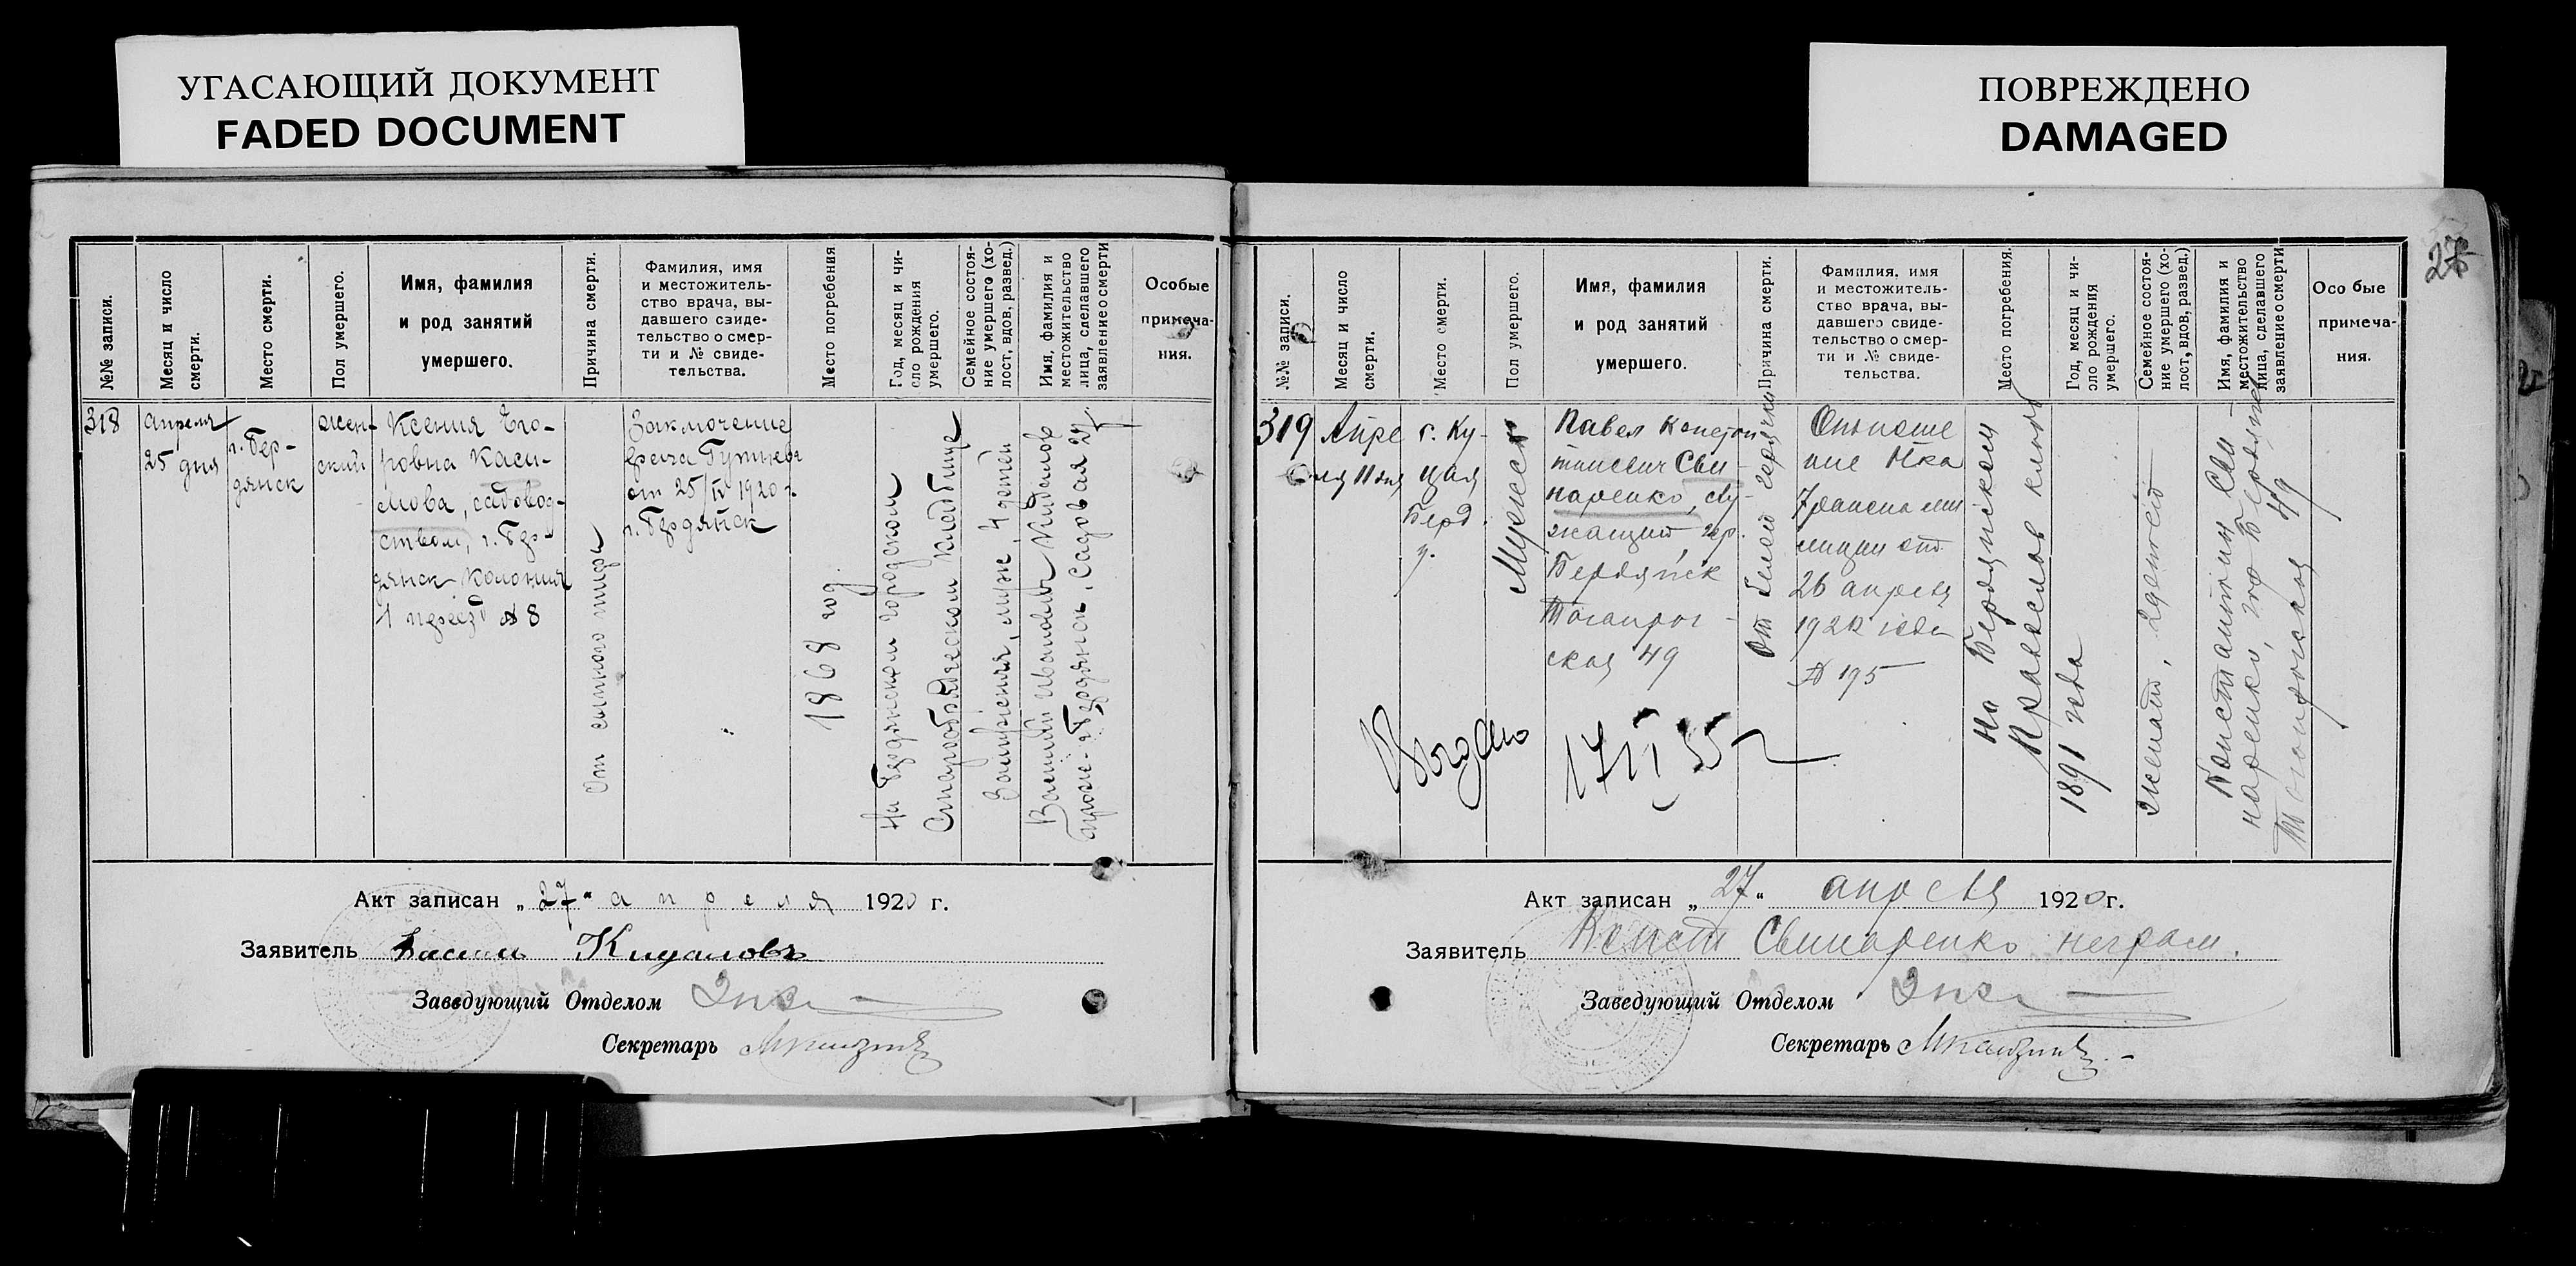 УГАСАЮЩИЙ ДОКУМЕНТ
FADED DOCUMENT
ПОВРЕЖДЕНО
DAMAGED
№№ записи.
Месяц и число
смерти.
Место смерти.
Пол умершего.
Имя, фамилия
и род занятий
умершего.
Причина смерти.
Фамилия, имя
и местожитель-
ство врача, вы-
давшего свиде-
тельство о смер-
ти и № свиде-
тельства.
Место погребения
Год, месяц и чи-
сло рождения
умершего.
Семейное состоя-
ние умершего (хо-
лост, вдов, развед.)
Имя, фамилия и
местожительство
лица, сделавшего
заявление о смерти
Особые
примеча-
ния.
318
апреля
25 дня
г. Бер-
дянск
жен-
ский
Ксения Его-
ровна Каси-
мова, садовод-
ством, г. Бер-
дянск Колония
1 переезд № 8
От сыпного тифа
Заключение
врача
от 25/IV 1920 г.
г. Бердянск
1868 год
На Бердянском городском
Старообрядческом кладбище
Замужняя, муж, 4 детей
Василий Иванович Кидалов
Бердянск, Садовая 24
Акт записан „27“ апреля 1920 г.
Заявитель Васили Кидаловъ
Заведующий Отделом
Секретарь
27
№№ записи.
Месяц и число
смерти.
Место смерти.
Пол умершего.
Имя, фамилия
и род занятий
умершего.
Причина смерти.
Фамилия, имя
и местожитель-
ство врача, вы-
давшего свиде-
тельство о смер-
ти и № свиде-
тельства.
Место погребения.
Год, месяц и чи-
сло рождения
умершего.
Семейное состоя-
ние умершего (хо-
лост, вдов, развед.)
Имя, фамилия и
местожительство
лица, сделавшего
заявление о смерти
Особые
примеча-
ния.
319
Апре
ля 11 дня
с. Ку-
цая
Берд.
у.
Мужск
Павел Констан-
тинович Сви-
наренко, слу-
жащий, гор.
Бердянск
Таганрог-
ская 49
От белой горячки
Отноше
ние Нка
милиции от
26 апреля
1920 года
№ 195
На Бердянском
Правослов кладб
1891 года
женат, 2 детей
Константин Сви
наренко, гор Бердянск
Таганрогская 49
Выдано
17 VI 35 г
Акт записан „27“ апреля 1920 г.
Заявитель Конст Свинаренко неграм.
Заведующий Отделом
Секретарь